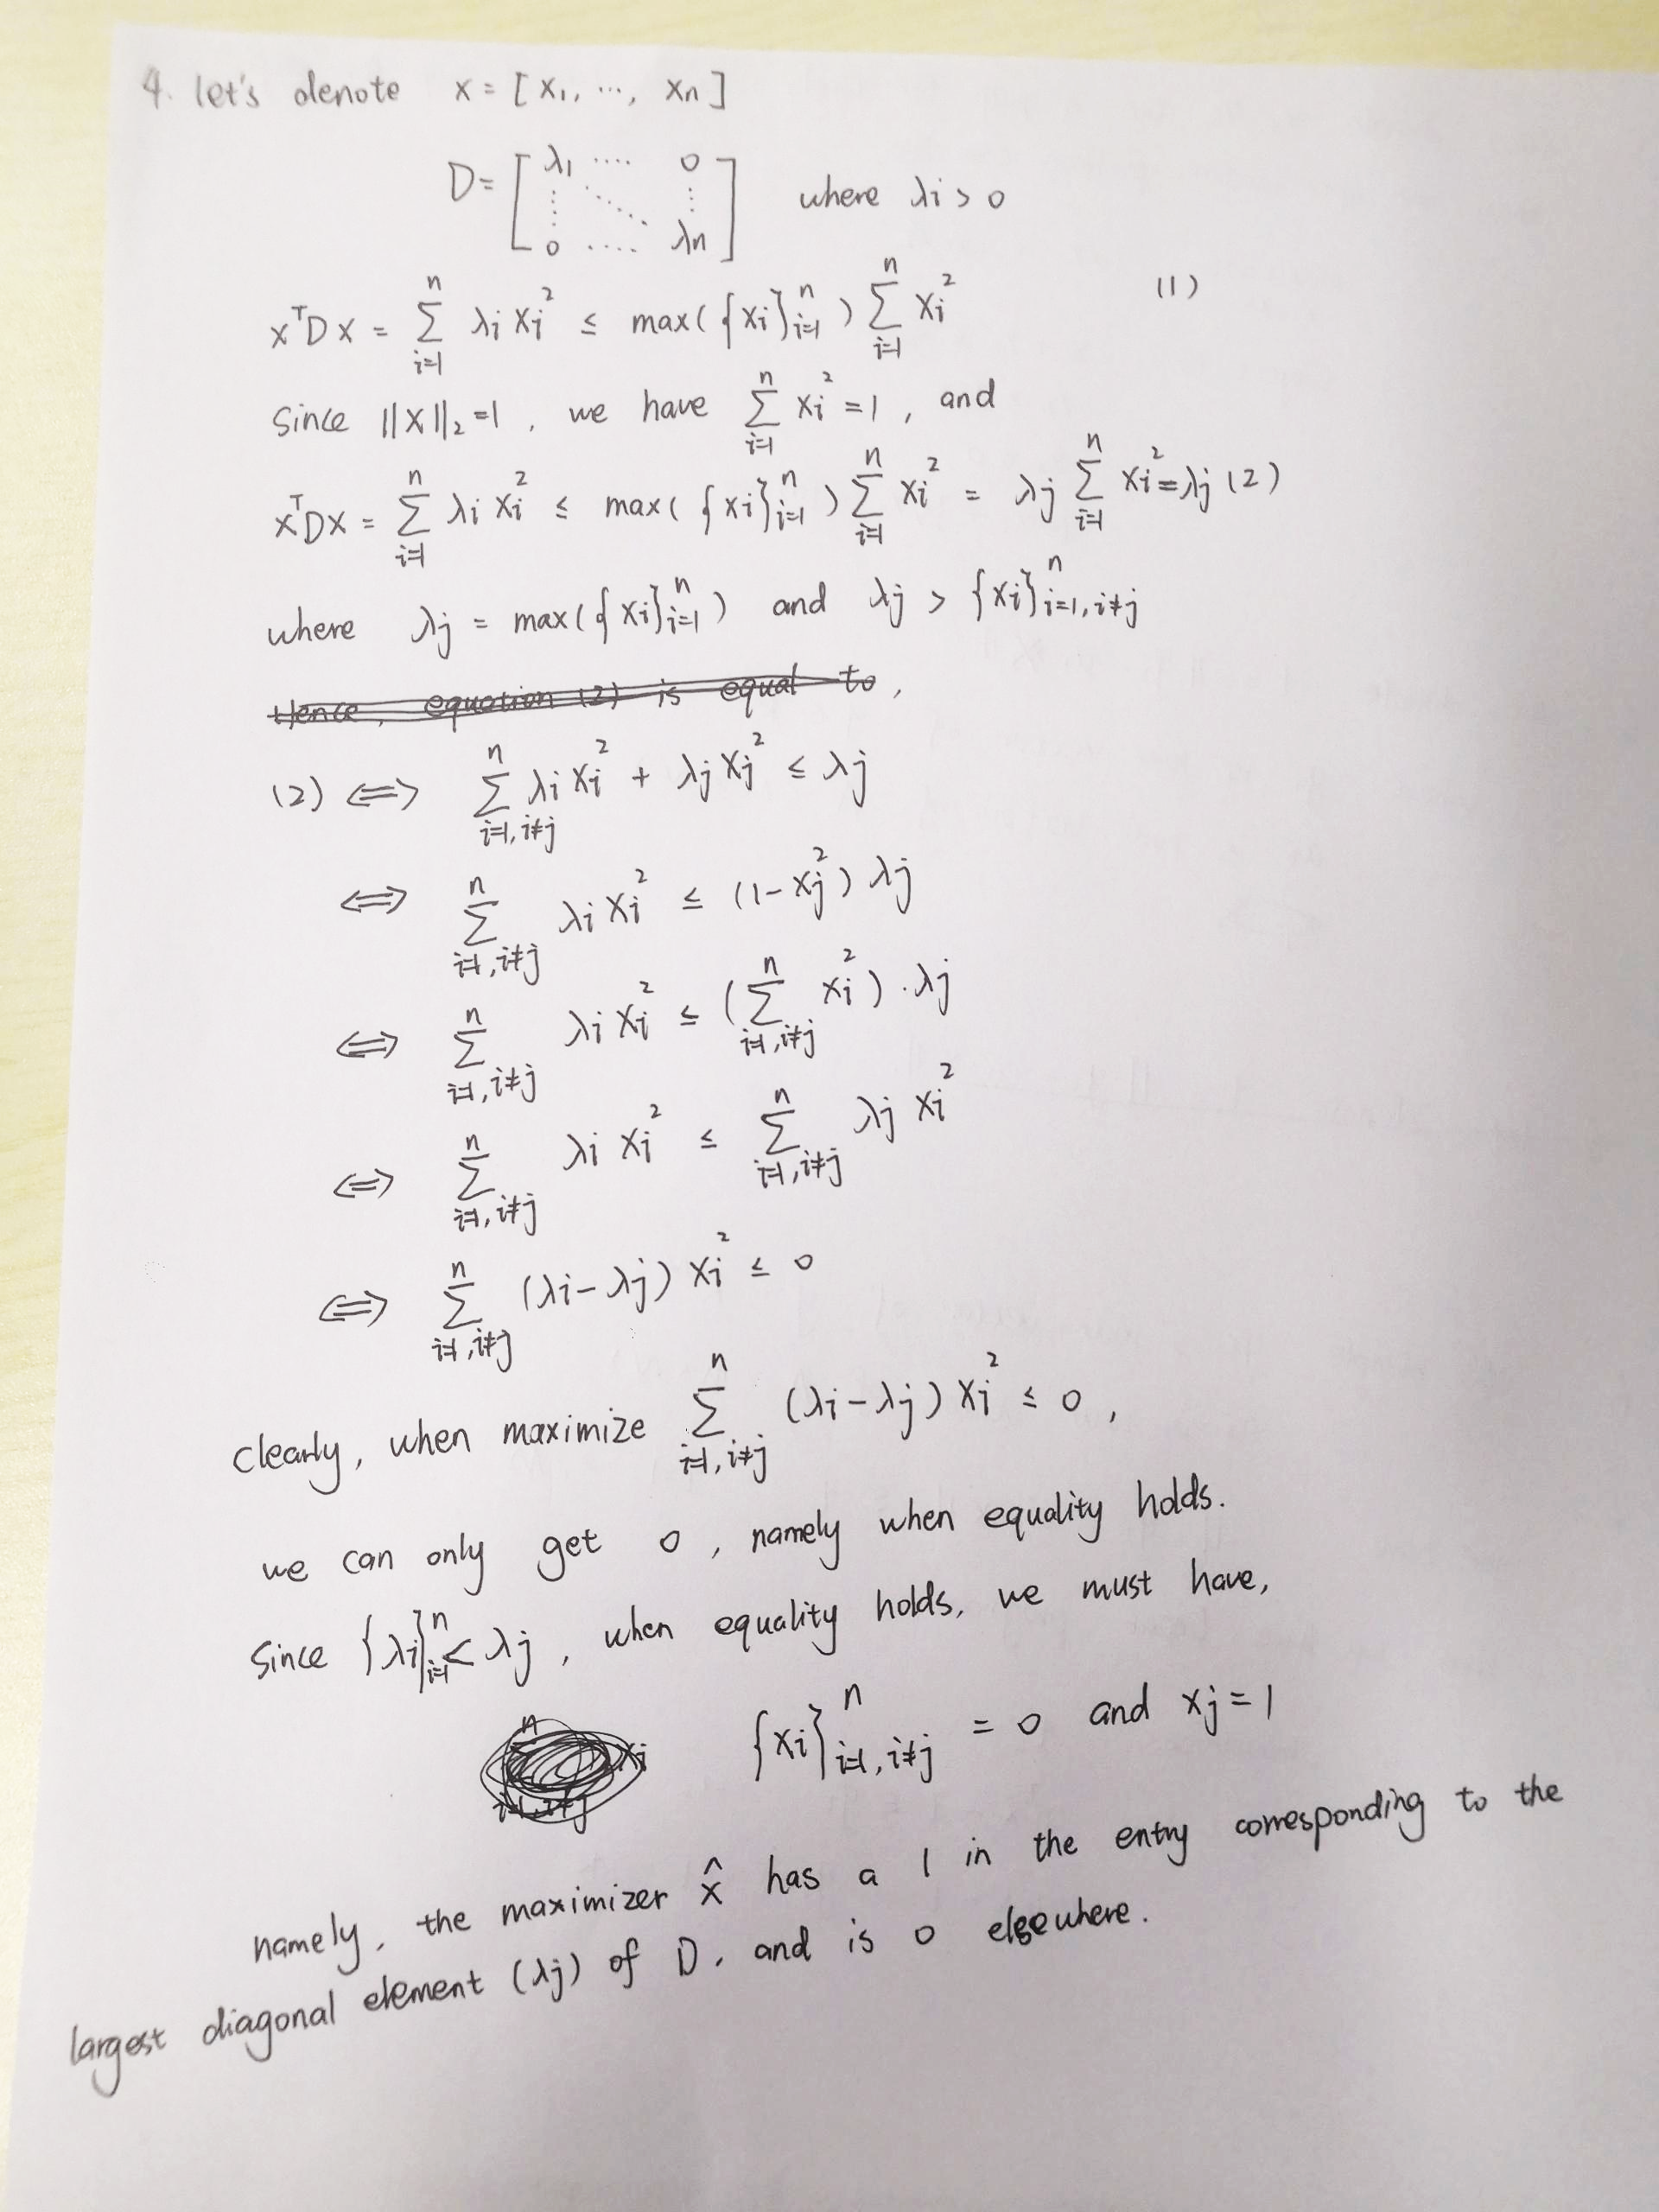 4. let's denote x = [ x₁, ..., xn ]
D = [ λ₁ .... 0 ⋮ ⋱ ⋮ 0 .... λn ] where λi > 0
xᵀDx = ∑_{i=1}^{n} λi xi² ≤ max( {xi}_{i=1}^{n} ) ∑_{i=1}^{n} xi² (1)
since ||x||₂ = 1 , we have ∑_{i=1}^{n} xi² = 1 , and
xᵀDx = ∑_{i=1}^{n} λi xi² ≤ max( {xi}_{i=1}^{n} ) ∑_{i=1}^{n} xi² = λj ∑_{i=1}^{n} xi² = λj (2)
where λj = max( {xi}_{i=1}^{n} ) and λj > {xi}_{i=1, i≠j}^{n}
Hence, equation (2) is equal to ,
(2) ⟺ ∑_{i=1, i≠j}^{n} λi xi² + λj xj² ≤ λj
⟺ ∑_{i=1, i≠j}^{n} λi xi² ≤ (1 - xj²) λj
⟺ ∑_{i=1, i≠j}^{n} λi xi² ≤ ( ∑_{i=1, i≠j}^{n} xi² ) · λj
⟺ ∑_{i=1, i≠j}^{n} λi xi² ≤ ∑_{i=1, i≠j}^{n} λj xi²
⟺ ∑_{i=1, i≠j}^{n} (λi - λj) xi² ≤ 0
clearly, when maximize ∑_{i=1, i≠j}^{n} (λi - λj) xi² ≤ 0 ,
we can only get 0 , namely when equality holds.
since {λi}_{i=1}^{n} < λj , when equality holds, we must have,
{xi}_{i=1, i≠j}^{n} = 0 and xj = 1
namely, the maximizer x̂ has a 1 in the entry corresponding to the
largest diagonal element (λj) of D, and is 0 elsewhere.